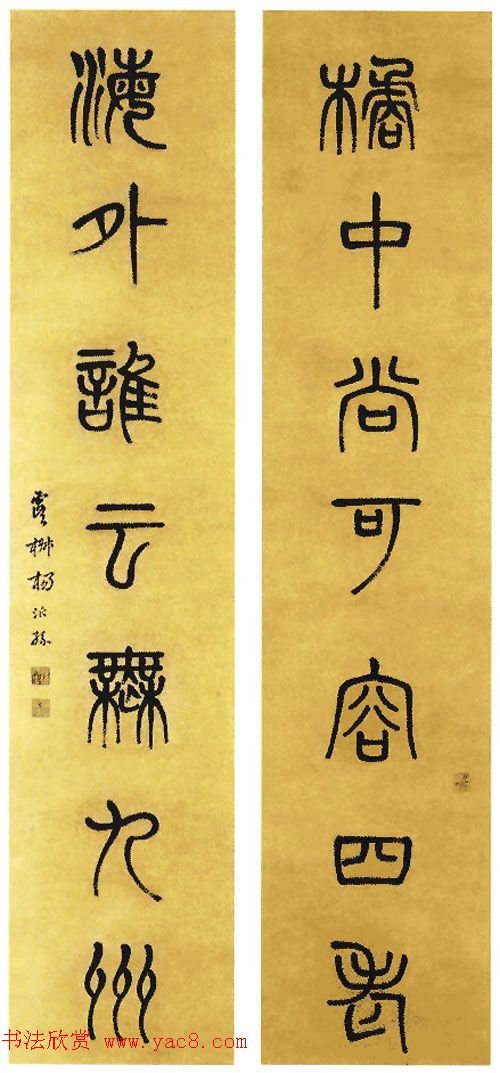 橘中尚可容四老
海外誰云無九州
楊沂孫
书法欣赏 www.yac8.com